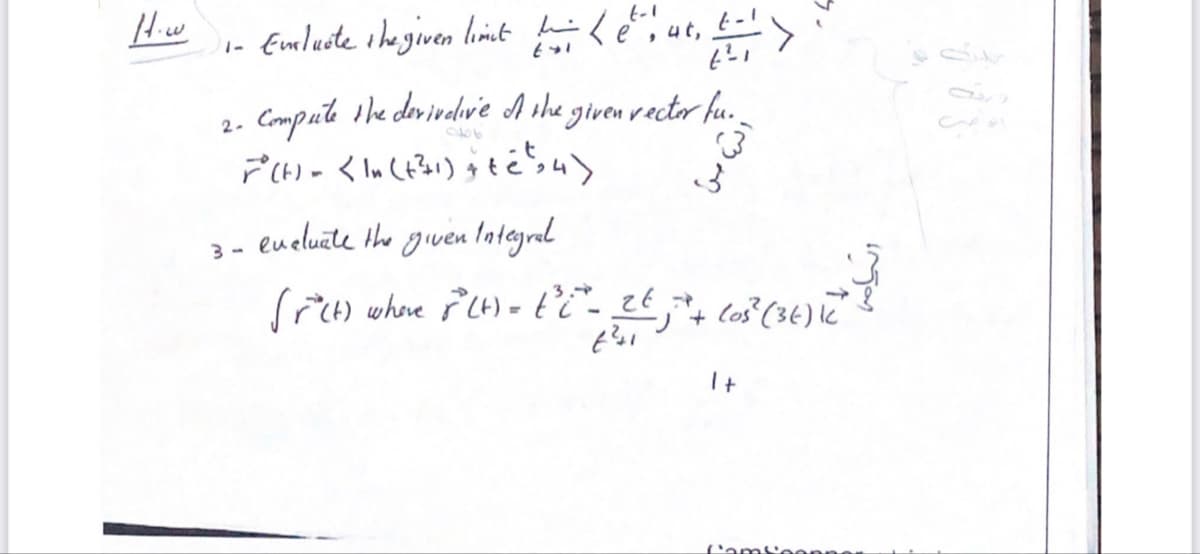 H.w
1- Evaluate the given limit lim t→1 < e^{t-1}, 4t, (t-1)/(t²-1) >
2- Compute the derivative of the given vector fu.
r⃗(t) = < ln(t²+1), t e^{-t}, 4 >
3- evaluate the given Integral
∫ r⃗(t) where r⃗(t) = t³ i⃗ - 2t/(t²+1) j⃗ + cos²(3t) k⃗
1+